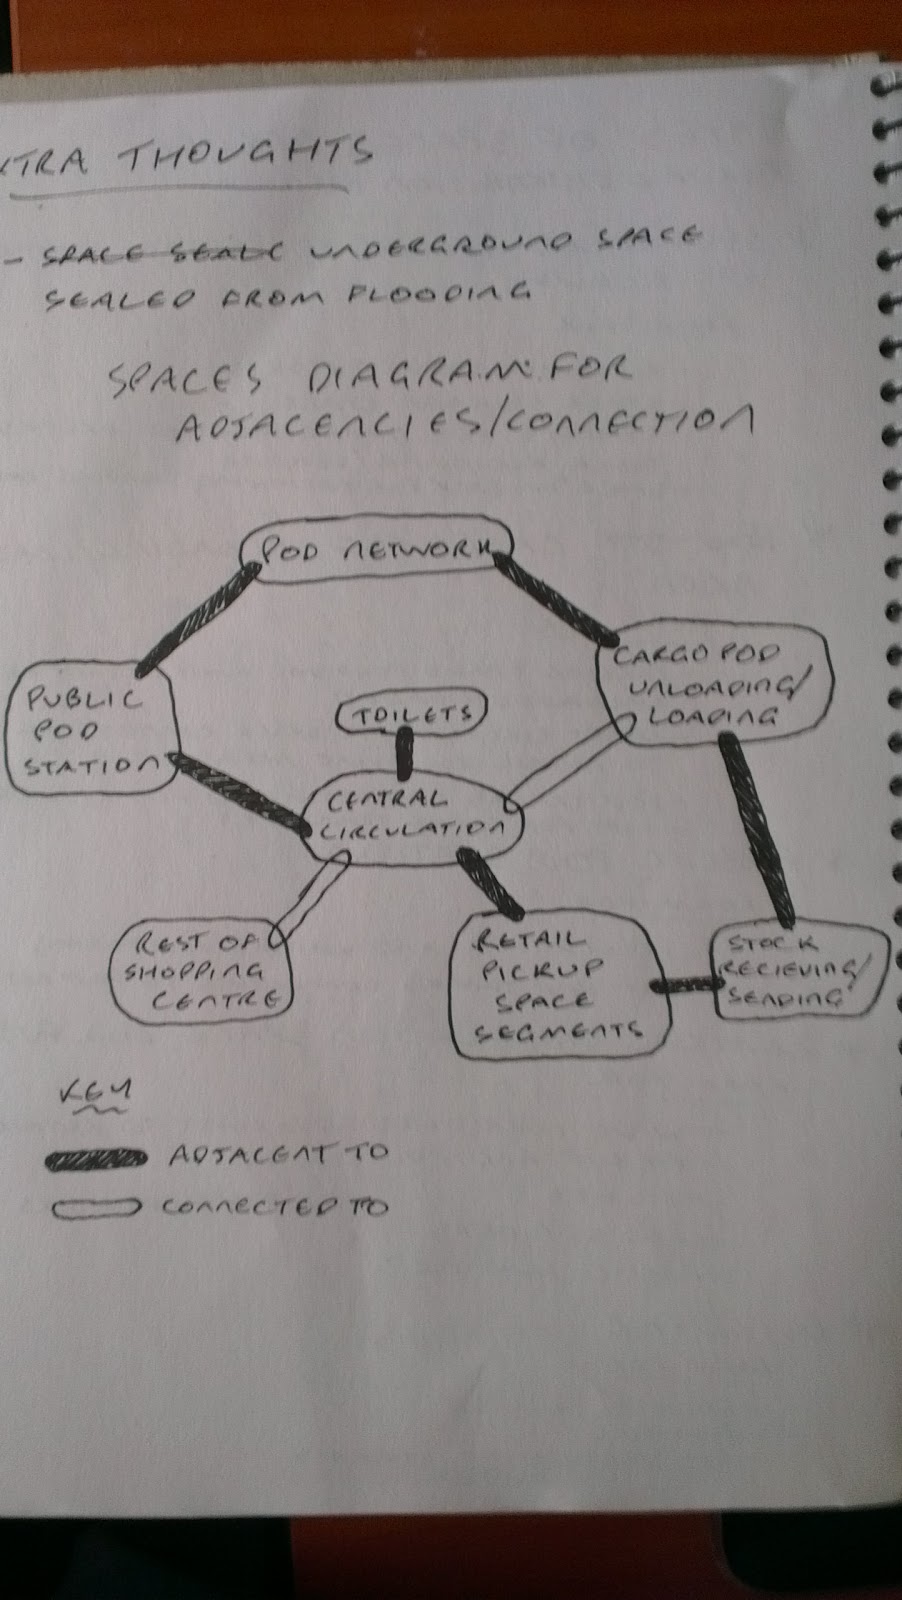 XTRA THOUGHTS
- SPACE SEALC UNDERGROUND SPACE
SEALED FROM FLOODING
SPACES DIAGRAM FOR
ADJACENCIES/CONNECTION
POD NETWORK
CARGO POD
UNLOADING/
LOADING
PUBLIC
POD
STATION
TOILETS
CENTRAL
CIRCULATION
REST OF
SHOPPING
CENTRE
RETAIL
PICKUP
SPACE
SEGMENTS
STOCK
RECIEVING/
SENDING
KEY
ADJACENT TO
CONNECTED TO